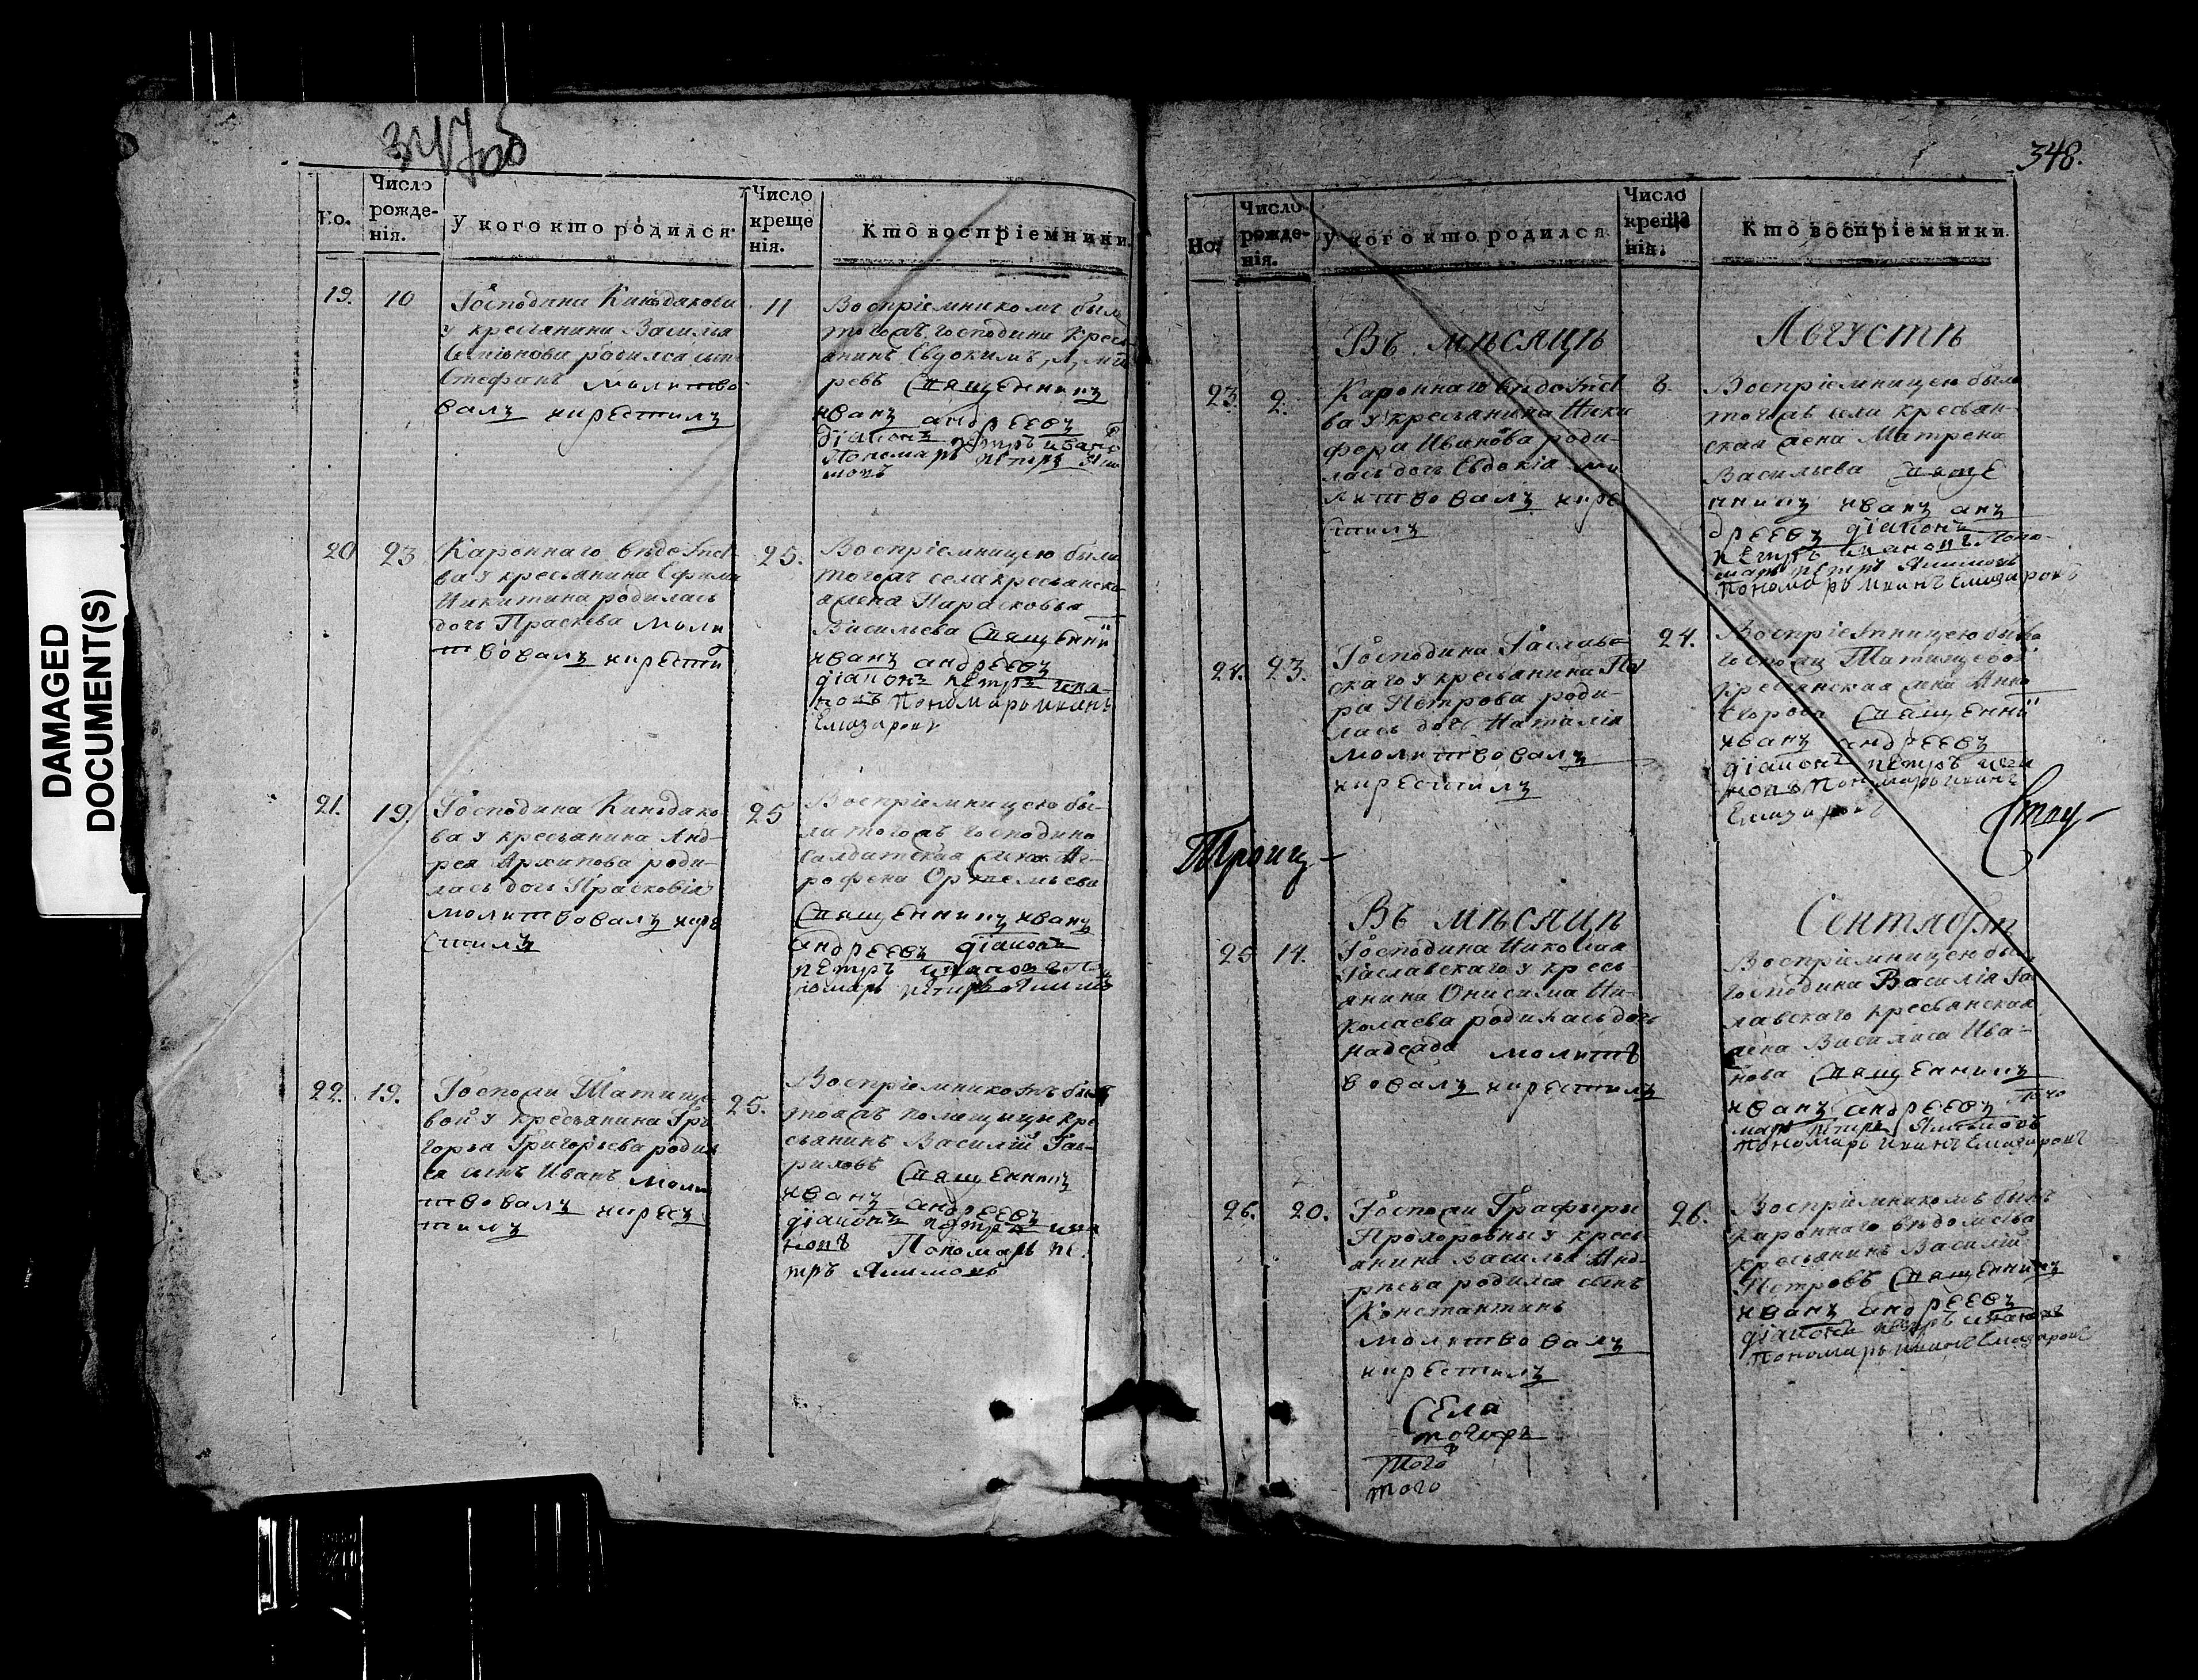 DAMAGED
DOCUMENT(S)
Но.
Число
рожде-
нія.
У кого кто родился
Число
креще
нія.
Кто воспріемники.
19.
10
Господина Киндякова
у крестьянина Василья
родился сынъ
Стефанъ молитво
валъ икрестилъ
11
Воспріемникомъ былъ
тогожъ господина кресть
янинъ Евдокимъ
священникъ
иванъ андреевъ
діаконъ петръ ивановъ
Пономарь петръ Яки
мовъ
20
23
Кароннаго ведомст
ва у крестьянина Ефима
Никитина родилась
дочь Праскева моли
твовалъ икрести
25.
Воспріемницею была
тогожъ села крестьянска
я жена Парасковья
Васильева священни
иванъ андреевъ
діаконъ петръ ива-
новъ Пономарь иванъ
Елизаровъ
21.
19.
Господина Киндяко
ва у крестьянина Анд-
рея Архипова роди-
лась дочь Прасковія
молитвовалъ икре
стилъ
25
Воспріемницею бы-
ла тогожъ господина
салдатская жена Аг-
рофена Ортемьева
священникъ иванъ
андреевъ діаконъ
петръ ивановъ По
номарь петръ Якимов
22.
19.
Госпожи Татище
вой у крестьянина Гри
горья Григорьева родил
ся сынъ Иванъ моли
твовалъ икрес
тилъ
25.
Воспріемникомъ былъ
тояжъ помещицы кре
стьянинъ Василій Гав-
риловъ священникъ
иванъ андреевъ
діаконъ петръ ива
новъ Пономарь пе
тръ Якимовъ
348.
Но.
Число
рожде-
нія.
У кого кто родился
Число
креще
нія.
Кто воспріемники.
Въ мѣсяцѣ Августѣ
23.
2.
Кароннаго ведомст
ва у крестьянина Ники
фора Иванова роди-
лась дочь Евдокіа мо
литвовалъ икре
стилъ
8.
Воспріемницею была
тогожъ села крестьян-
ская жена Матрена
Васильева свяще
нникъ иванъ ан
дреевъ діаконъ
петръ ивановъ Поно-
марь петръ Якимовъ
Пономарь иванъ Елизаровъ
24.
23.
Господина Гаслав-
скаго у крестьянина
Петрова роди-
лась дочь Наталія
молитвовалъ
икрестилъ
24.
Воспріемницею была
госпожи Татищевой
крестьянская жена Анна
Егорова священни
иванъ андреевъ
діаконъ петръ ива
новъ Пономарь иванъ
Елизаровъ
Троиц-
Въ мѣсяцѣ Сентябрѣ
25
14.
Господина Николая
Гаславскаго у кресть-
янина Онисима Ни-
колаева родилась дочь
Надежда молит
вовалъ икрестилъ
Воспріемницею был
господина Василія Гас
лавскаго крестьянская
жена Василиса Ива-
нова священникъ
иванъ андреевъ Поно
марь петръ Якимовъ
Пономарь иванъ Елизаровъ
26.
20.
Госпожи Графиры
Прохоровны у кресть-
янина Василья Анд-
рѣева родился сынъ
Константинъ
молитвовалъ
икрестилъ
26.
Воспріемникомъ былъ
Каронного ведомства
крестьянинъ Василій
Петровъ священникъ
иванъ андреевъ
діаконъ петръ ивановъ
Пономарь иванъ Елизаровъ
Села
тогожъ
того
того